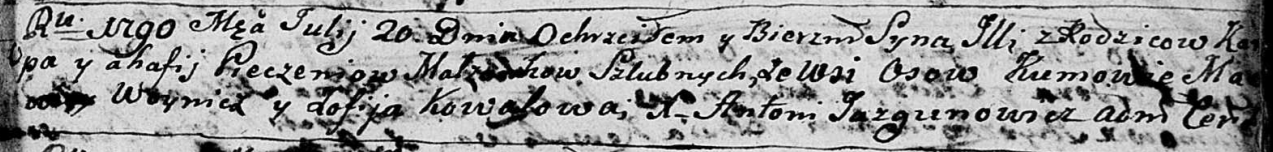 Ru. 1790 Mca Julij 20. Dnia Ochrzciłem y Bierzm Syna Illi z Rodzicow Kar
pa y Ahafij Pieczeniow Małzonkow Szlubnych, ze Wsi Osow Kumowie
Woynicz y Zofija Kowalowa, X. Antoni Jazgunowicz adm